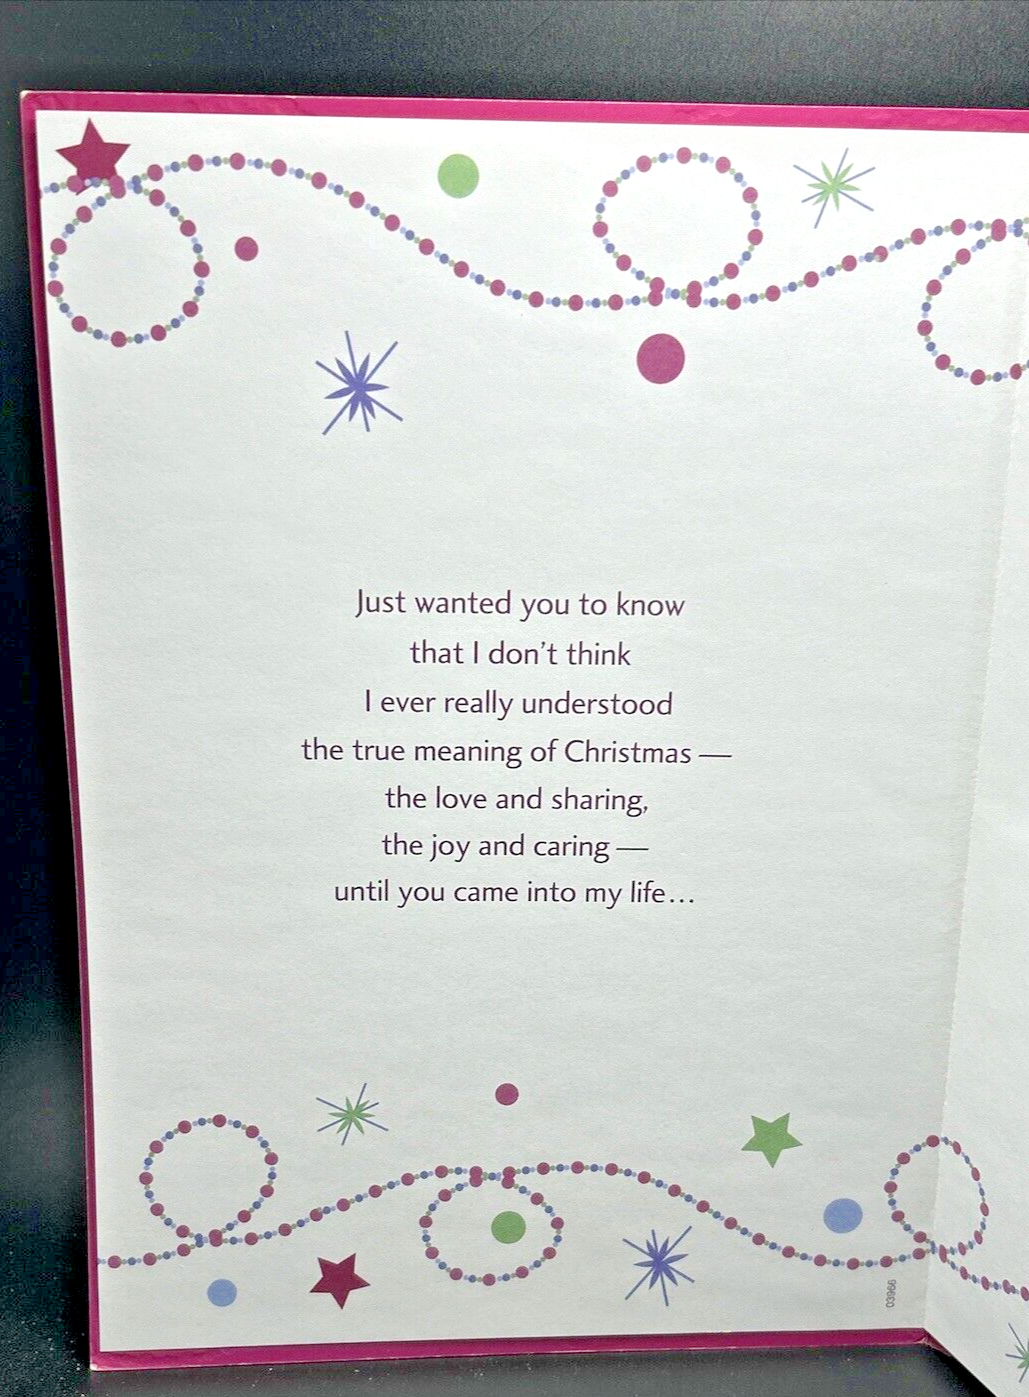 Just wanted you to know
that I don’t think
I ever really understood
the true meaning of Christmas —
the love and sharing,
the joy and caring —
until you came into my life...
03966